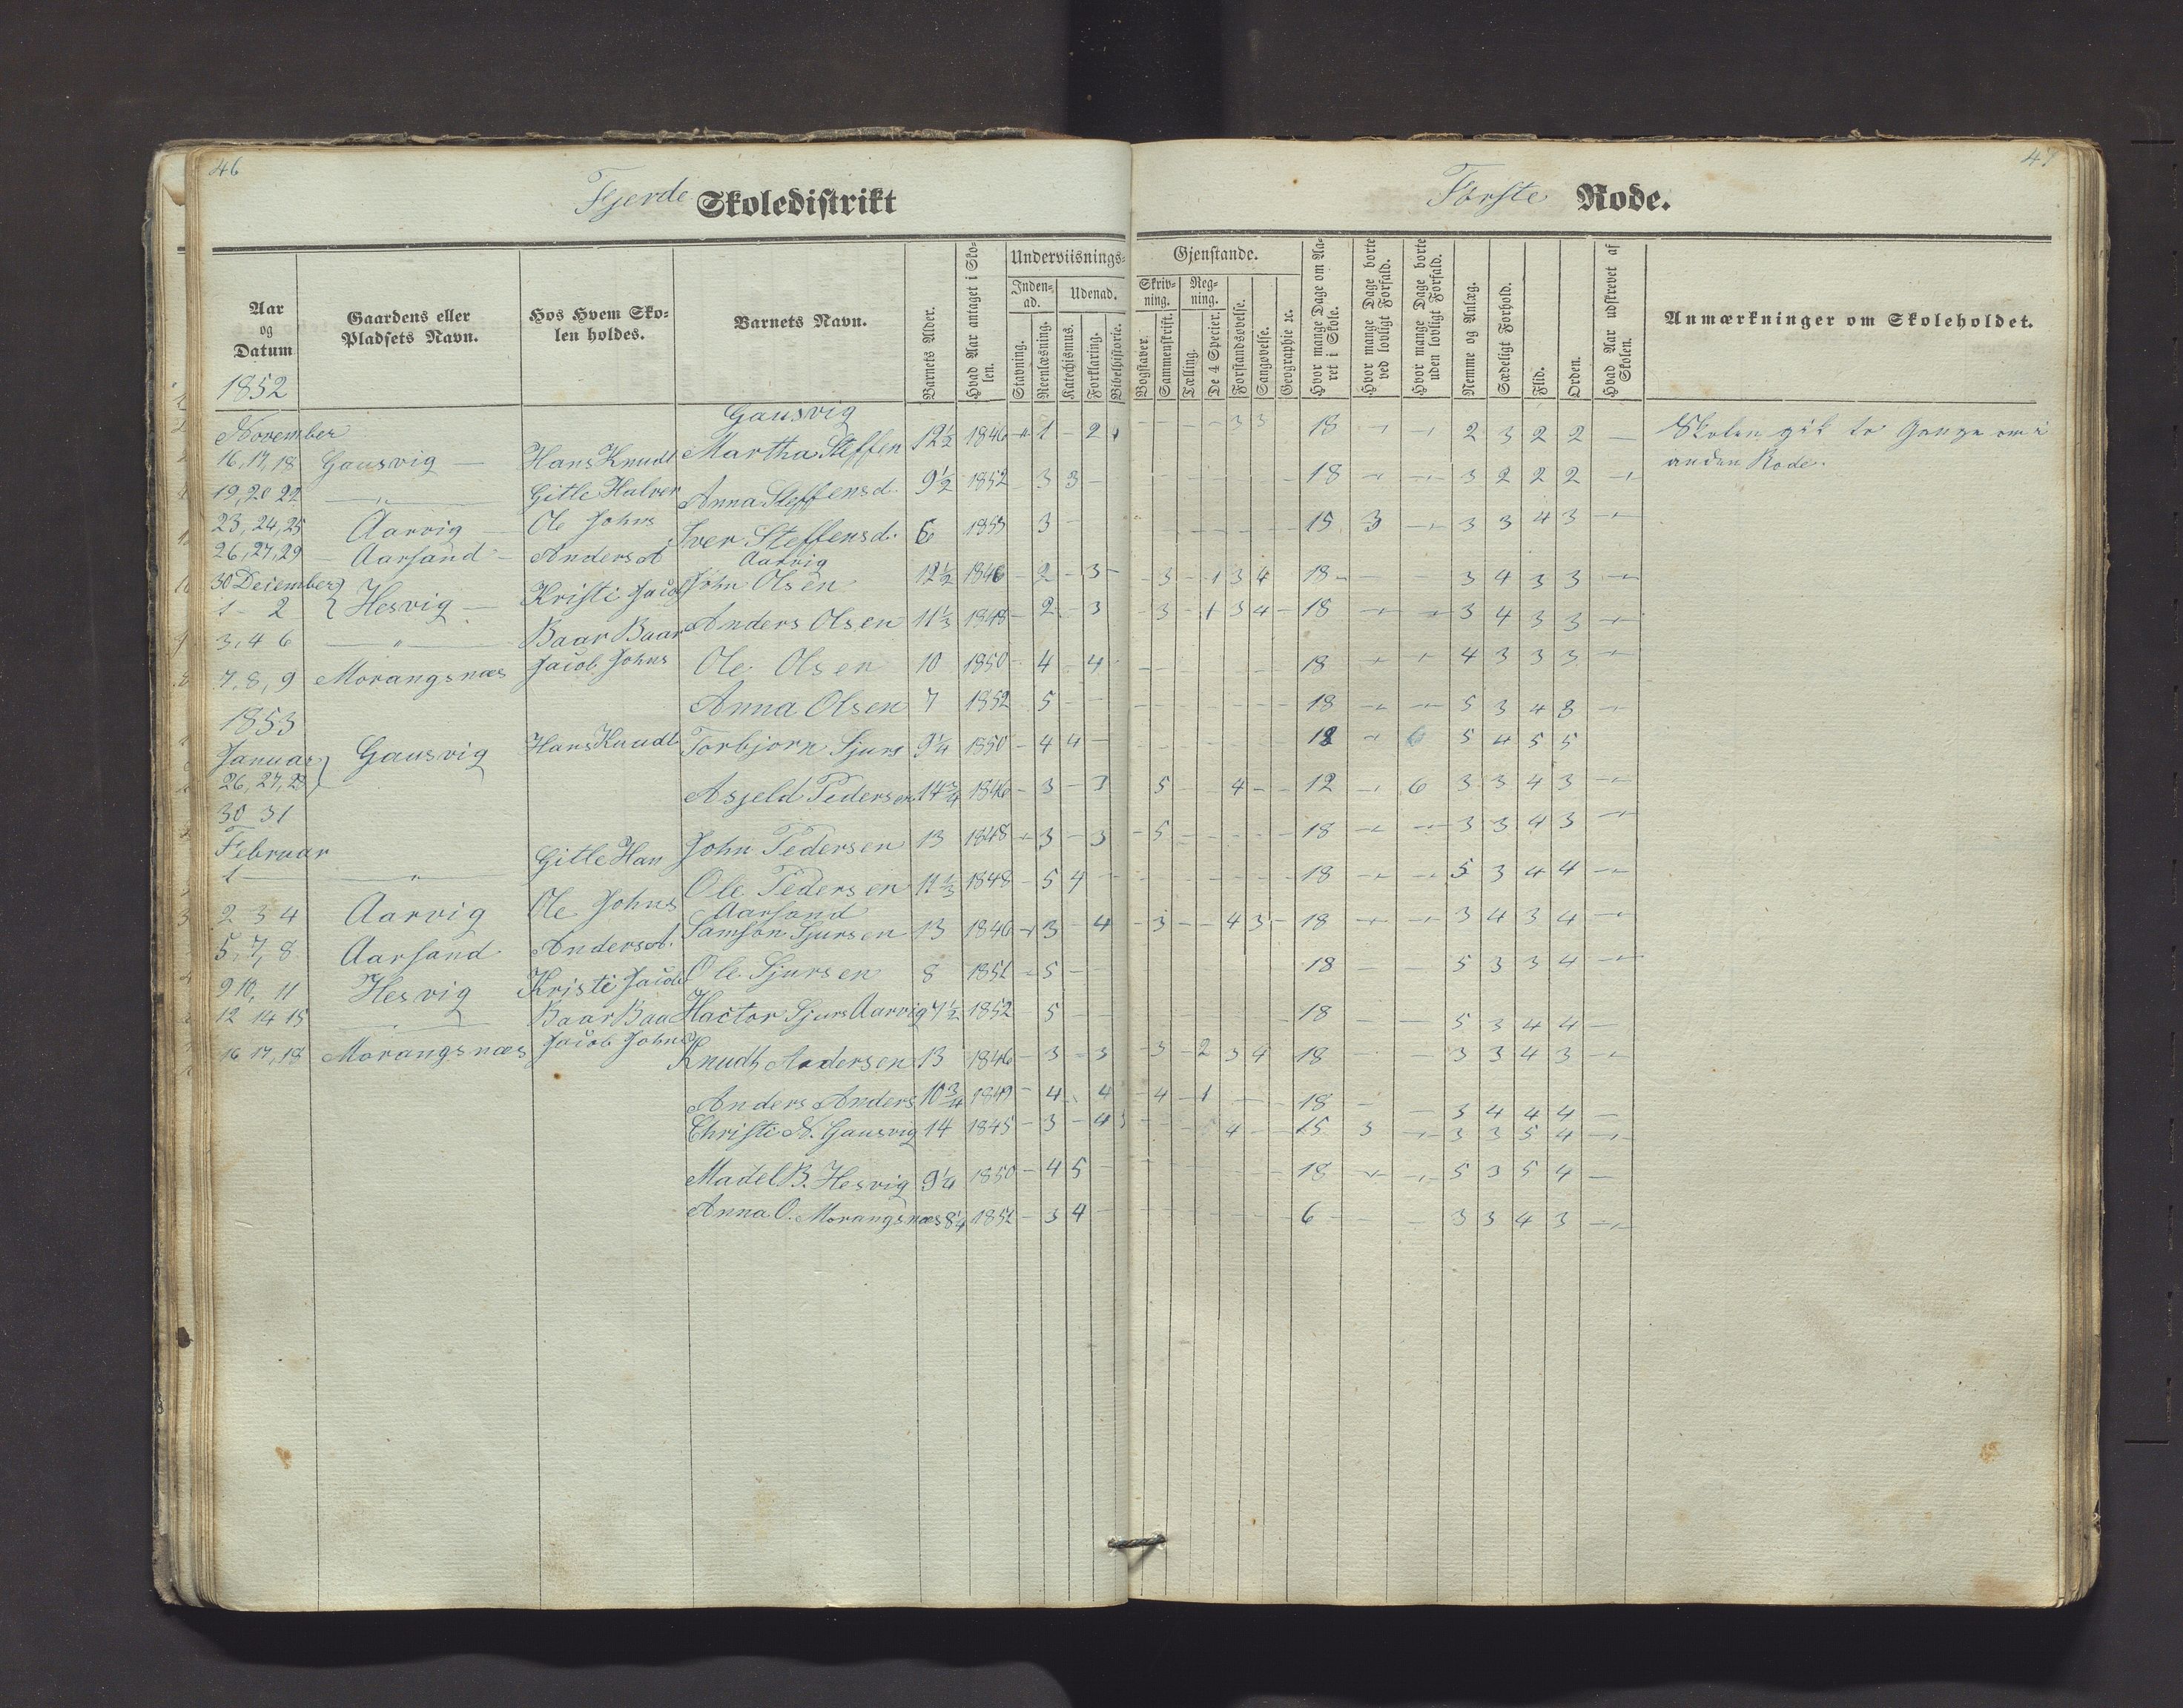 46
Fjerde Skoledistrikt
Aar og Datum
Gaardens eller Pladsets Navn.
Hos Hvem Skolen holdes.
Barnets Navn.
Barnets Alder.
Hvad Aar antaget i Skolen.
Underviisnings-
Inden-ad.
Udenad.
Stavning.
Reenlæsning.
Katechismus.
Forklaring.
Bibelhistorie.
1852
November
16, 17, 18 Gausvig — Hans Knudt
19, 20 22 — " — Gitle Halver
23, 24, 25 Aarvig — Ole Johns
26, 27, 29 Aarsand — Anders A
30 December
1 - 2 } Hesvig — Kristi Jacob
3, 4 6 — " — Baar Baar
7, 8, 9 Morangsnæs Jacob Johns
1853
Januar
26, 27, 28 } Gausvig Hans Knudt
30 31
Februar
1 — " — Gitle Han
2 3 4 Aarvig Ole Johns
5, 7, 8 Aarsand Anders A.
9 10, 11 Hesvig Kristi Jacob
12 14 15 — " — Baar Baar
16 17, 18 Morangsnæs Jacob Johns
Gausvig
Martha Steffen 12½ 1846 1 - 2
Anna Steffensd. 9½ 1852 3 3 -
Iver Steffensd. 6 1853 3 -
Aarvig
John Olsen 12½ 1846 - 2 - 3 -
Anders Olsen 11⅓ 1848 - 2 - 3
Ole Olsen 10 1850 - 4 - 4
Anna Olsen 7 1852 5 - -
Torbjorn Sjurs 9¼ 1850 - 4 4 -
Asjeld Pedersen 14¾ 1846 - 3 - 3
John Pedersen 13 1848 - 3 - 3
Ole Pedersen 11⅓ 1848 - 5 4 -
Aarsand
Samson Sjursen 13 1846 - 3 - 4
Ole Sjursen 8 1851 - 5 -
Hactor Sjurs Aarvig 7½ 1852 - 5 -
Knudt Andersen 13 1846 - 3 - 3
Anders Anders 10¾ 1849 - 4 - 4
Christi N. Gausvig 14 1845 - 3 - 4 3
Madel B. Hesvig 9¼ 1850 - 4 5 -
Anna O. Morangsnæs 8¼ 1851 - 3 4 -
47
Første Rode.
Gjenstande.
Skriv-ning.
Reg-ning.
Bogstaver.
Sammenskrift.
Tælling.
De 4 Specier.
Forstandsøvelse.
Sangøvelse.
Geographie ꝛc.
Hvor mange Dage om Aaret i Skole.
Hvor mange Dage borte ved lovligt Forfald.
Hvor mange Dage borte uden lovligt Forfald.
Nemme og Anlæg.
Sædeligt Forhold.
Flid.
Orden.
Hvad Aar udskrevet af Skolen.
Anmærkninger om Skoleholdet.
- - - - 3 3 18 - - 2 3 2 2 — Skolen gik to Gange om i
anden Rode.
18 - - 3 2 2 2 -
15 3 - 3 3 4 3 -
- 3 - 1 3 4 18 - - 3 4 3 3 -
3 - 1 3 4 - 18 - - 3 4 3 3 -
18 - - 4 3 3 3 -
18 - - 5 3 4 3 -
12 - 6 5 4 5 5
5 - - 4 - - 12 - 6 3 3 4 3 -
- 5 - - - - 18 - - 3 3 4 3 -
18 - - 5 3 4 4 -
- 3 - - 4 3 - 18 - - 3 4 3 4 -
18 - - 5 3 3 4 -
18 - - 5 3 4 4 -
- 3 - 2 3 4 18 - 3 3 4 3 -
- 4 - 1 - - 18 - - 3 4 4 4 -
4 - - 15 3 - 3 3 5 4 -
18 - - 5 3 5 4 -
6 - - 3 3 4 3 -